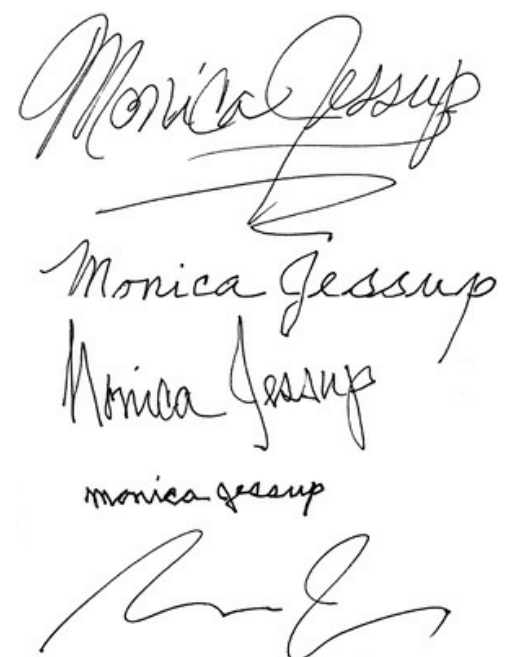 Monica Jessup
Monica Jessup
Monica Jessup
monica jessup